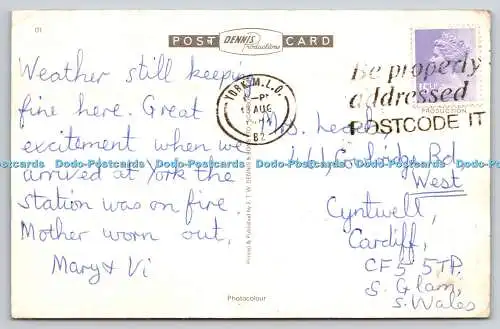 171
POST DENNIS Productions CARD
Weather still keeping
fine here. Great
excitement when we
arrived at York the
station was on fire.
Mother worn out.
Mary & Vi
YORK M.L.O.
PM
AUG
82
Be properly
addressed
POSTCODE IT
Mrs.
Rd
West
Cyntwell,
Cardiff,
CF5 5TP.
S. Glam,
S. Wales
Photocolour
Dodo-Postcards Dodo-Postcards Dodo-Postcards Dodo-Postcards Dodo-Postcards Dodo-Postcards